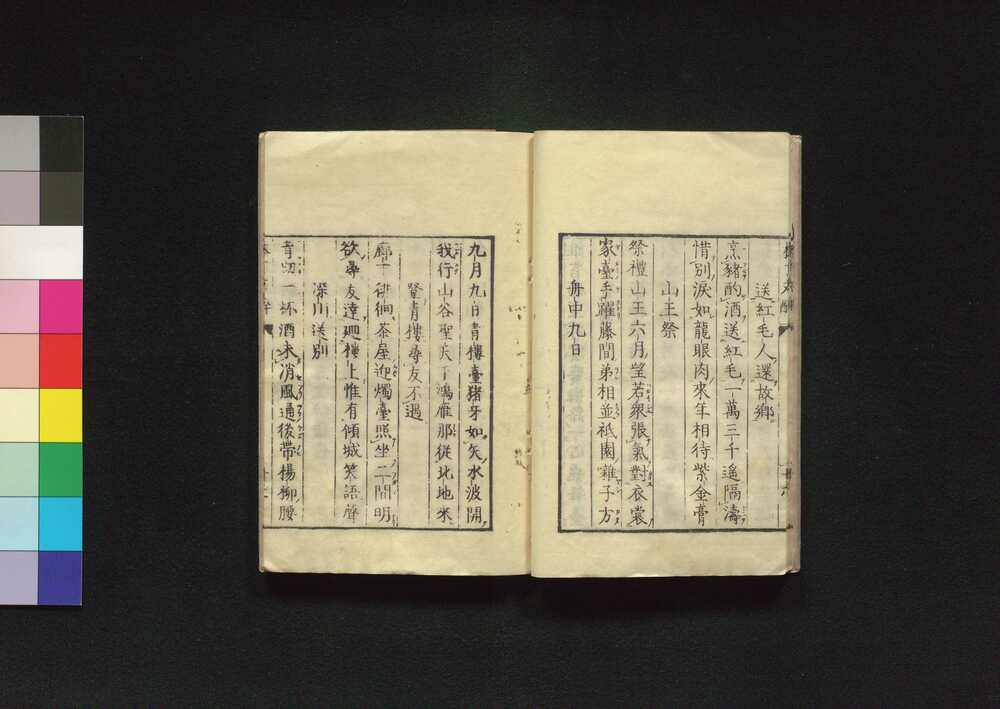 送紅毛人還故鄉
烹豬酌酒送紅毛一萬三千遥隔濤
惜別淚如龍眼肉來年相待紫金膏
山王祭
祭禮山王六月望若衆張氣對衣裳
家臺手躍藤間弟相並祗園雜子方
舟中九日
九月九日青樓臺猪牙如矢水波開
我行山谷聖天下鴻雁那從北地來
登青樓尋友不遇
廊下徘徊茶屋迎燭臺照坐二間明
欲尋友達廻樓上惟有傾城笑語聲
深川送別
青 一杯酒未消風通後帶楊柳腰